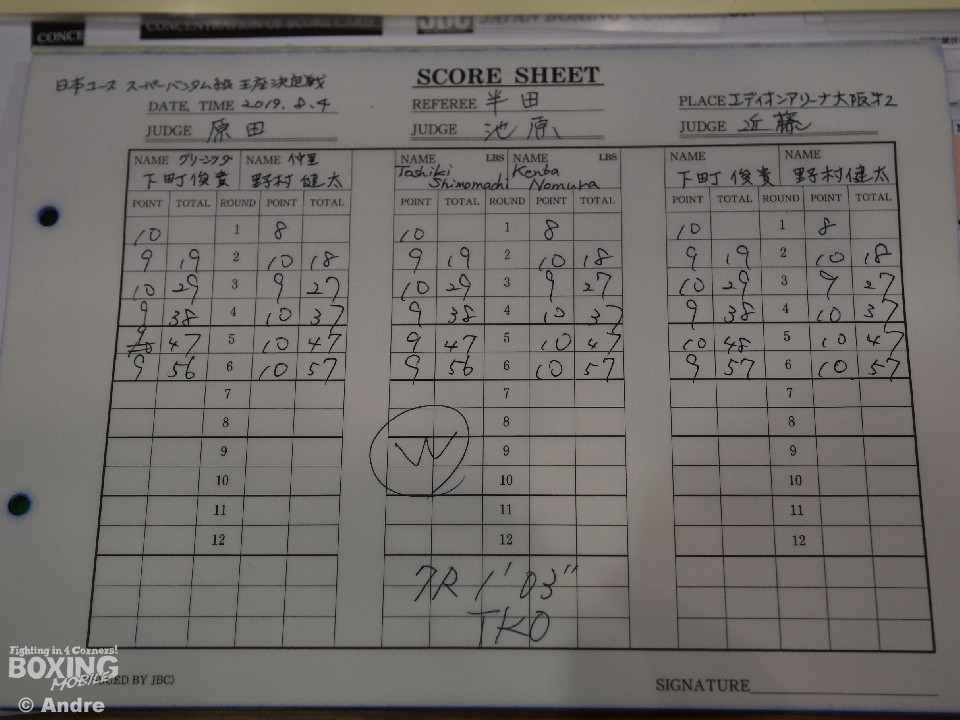 CONCE
CONCENTRATION OF SCORE CARD
JBC JAPAN BOXING COMMISSION
日本ユース スーパーバンタム級 王座決定戦
SCORE SHEET
DATE, TIME 2019. 8. 4
REFEREE 半田
PLACE エディオンアリーナ大阪第2
JUDGE 原田
JUDGE 池原
JUDGE 近藤
NAME グリーンツダ NAME 仲里
下町俊貴 野村健太
NAME LBS NAME LBS
Toshiki Shimomachi Kenta Nomura
NAME NAME
下町俊貴 野村健太
POINT TOTAL ROUND POINT TOTAL POINT TOTAL ROUND POINT TOTAL POINT TOTAL ROUND POINT TOTAL
10 1 8 10 1 8 10 1 8
9 19 2 10 18 9 19 2 10 18 9 19 2 10 18
10 29 3 9 27 10 29 3 9 27 10 29 3 9 27
9 38 4 10 37 9 38 4 10 37 9 38 4 10 37
9 47 5 10 47 9 47 5 10 47 10 48 5 10 47
9 56 6 10 57 9 56 6 10 57 9 57 6 10 57
7 7 7
8 8 8
9 W 9 9
10 10 10
11 11 11
12 12 12
7R 1'03"
TKO
Fighting in 4 Corners!
BOXING
MOBILE
(ISSUED BY JBC)
SIGNATURE
© Andre